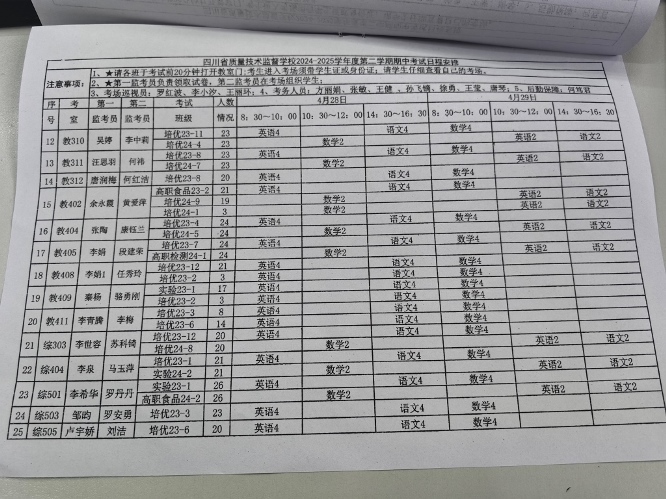 四川省质量技术监督学校2024-2025学年度第二学期期中考试日程安排
注意事项：
1、★请各班于考试前20分钟打开教室门;考生进入考场须带学生证或身份证；请学生仔细查看自己的考场。
2、★第一监考员负责领取试卷，第二监考员在考场组织学生；
3、考场巡视员：罗红波、李小汐、王丽环；4、考务人员：方丽娟、张敏、王健、孙飞镝、徐勇、王莹、唐琴；5、后勤保障：何笃君
序号 考室 第一监考员 第二监考员 考试班级 人数情况 4月28日 4月29日
8：30～10：00 10：30～12：00 14：30～16：00 8：30～10：00 10：30～12：00 14：30～16：30
12 教310 吴婷 李中莉 培优23-11 23 英语4 语文4 数学4
培优24-4 23 数学2 英语2 语文2
13 教311 汪思羽 何祎 培优23-8 23 英语4 语文4 数学4
培优24-7 23 数学2 英语2 语文2
14 教312 唐润梅 何红洁 培优23-8 20 英语4 语文4 数学4
15 教402 余永霞 黄爱萍 高职食品23-2 21 英语4 语文4 数学4
培优24-9 19 数学2 英语2 语文2
培优24-1 3 数学2 英语2 语文2
16 教404 张陶 康钰兰 培优23-4 24 英语4 语文4 数学4
培优24-5 24 数学2 英语2 语文2
17 教405 李娟 段建荣 培优23-7 24 英语4 语文4 数学4
高职检测24-1 24 数学2 英语2 语文2
18 教408 李娟1 任秀玲 培优23-12 21 英语4 语文4 数学4
培优23-2 3 英语4 语文4 数学4
19 教409 秦杨 骆勇刚 实验23-1 17 英语4 语文4 数学4
培优23-2 3 英语4 语文4 数学4
20 教411 李青腾 李梅 培优23-3 8 英语4 语文4 数学4
培优23-6 14 英语4 语文4 数学4
21 综303 李世容 苏科锜 培优23-12 20 英语4 语文4 数学4
培优24-8 20 数学2 英语2 语文2
22 综404 李泉 马玉萍 培优23-1 21 英语4 语文4 数学4
实验24-2 21 数学2 英语2 语文2
23 综501 李希华 罗丹丹 实验23-1 26 英语4 语文4 数学4
高职食品24-2 26 数学2 英语2 语文2
24 综503 邹昀 罗安勇 培优23-3 23 英语4 语文4 数学4
25 综505 卢宇娇 刘洁 培优23-6 20 英语4 语文4 数学4